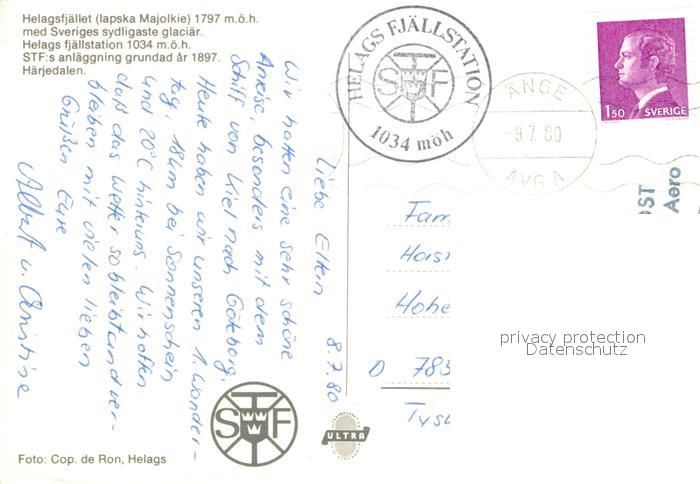 Helagsfjället (lapska Majolkie) 1797 m.ö.h.
med Sveriges sydligaste glaciär.
Helags fjällstation 1034 m.ö.h.
STF:s anläggning grundad år 1897.
Härjedalen.
HELAGS FJÄLLSTATION
STF
1034 möh
ÅNGE
-9.7.80
AVG A
1.50 SVERIGE
POST
Aero
8.7.80
Liebe Eltern
Wir hatten eine sehr schöne
Anreise, besonders mit dem
Schiff von Kiel nach Göteborg.
Heute haben wir unseren 1. Wander-
tag, 18km bei Sonnenschein
und 20°C hinter uns. Wir hoffen
daß das Wetter so bleibt und ver-
bleiben mit vielen lieben
Grüßen Eure
Albert u. Christine
Fam
Hohe
D 785
Tysk
privacy protection
Datenschutz
STF
ULTRA
Foto: Cop. de Ron, Helags